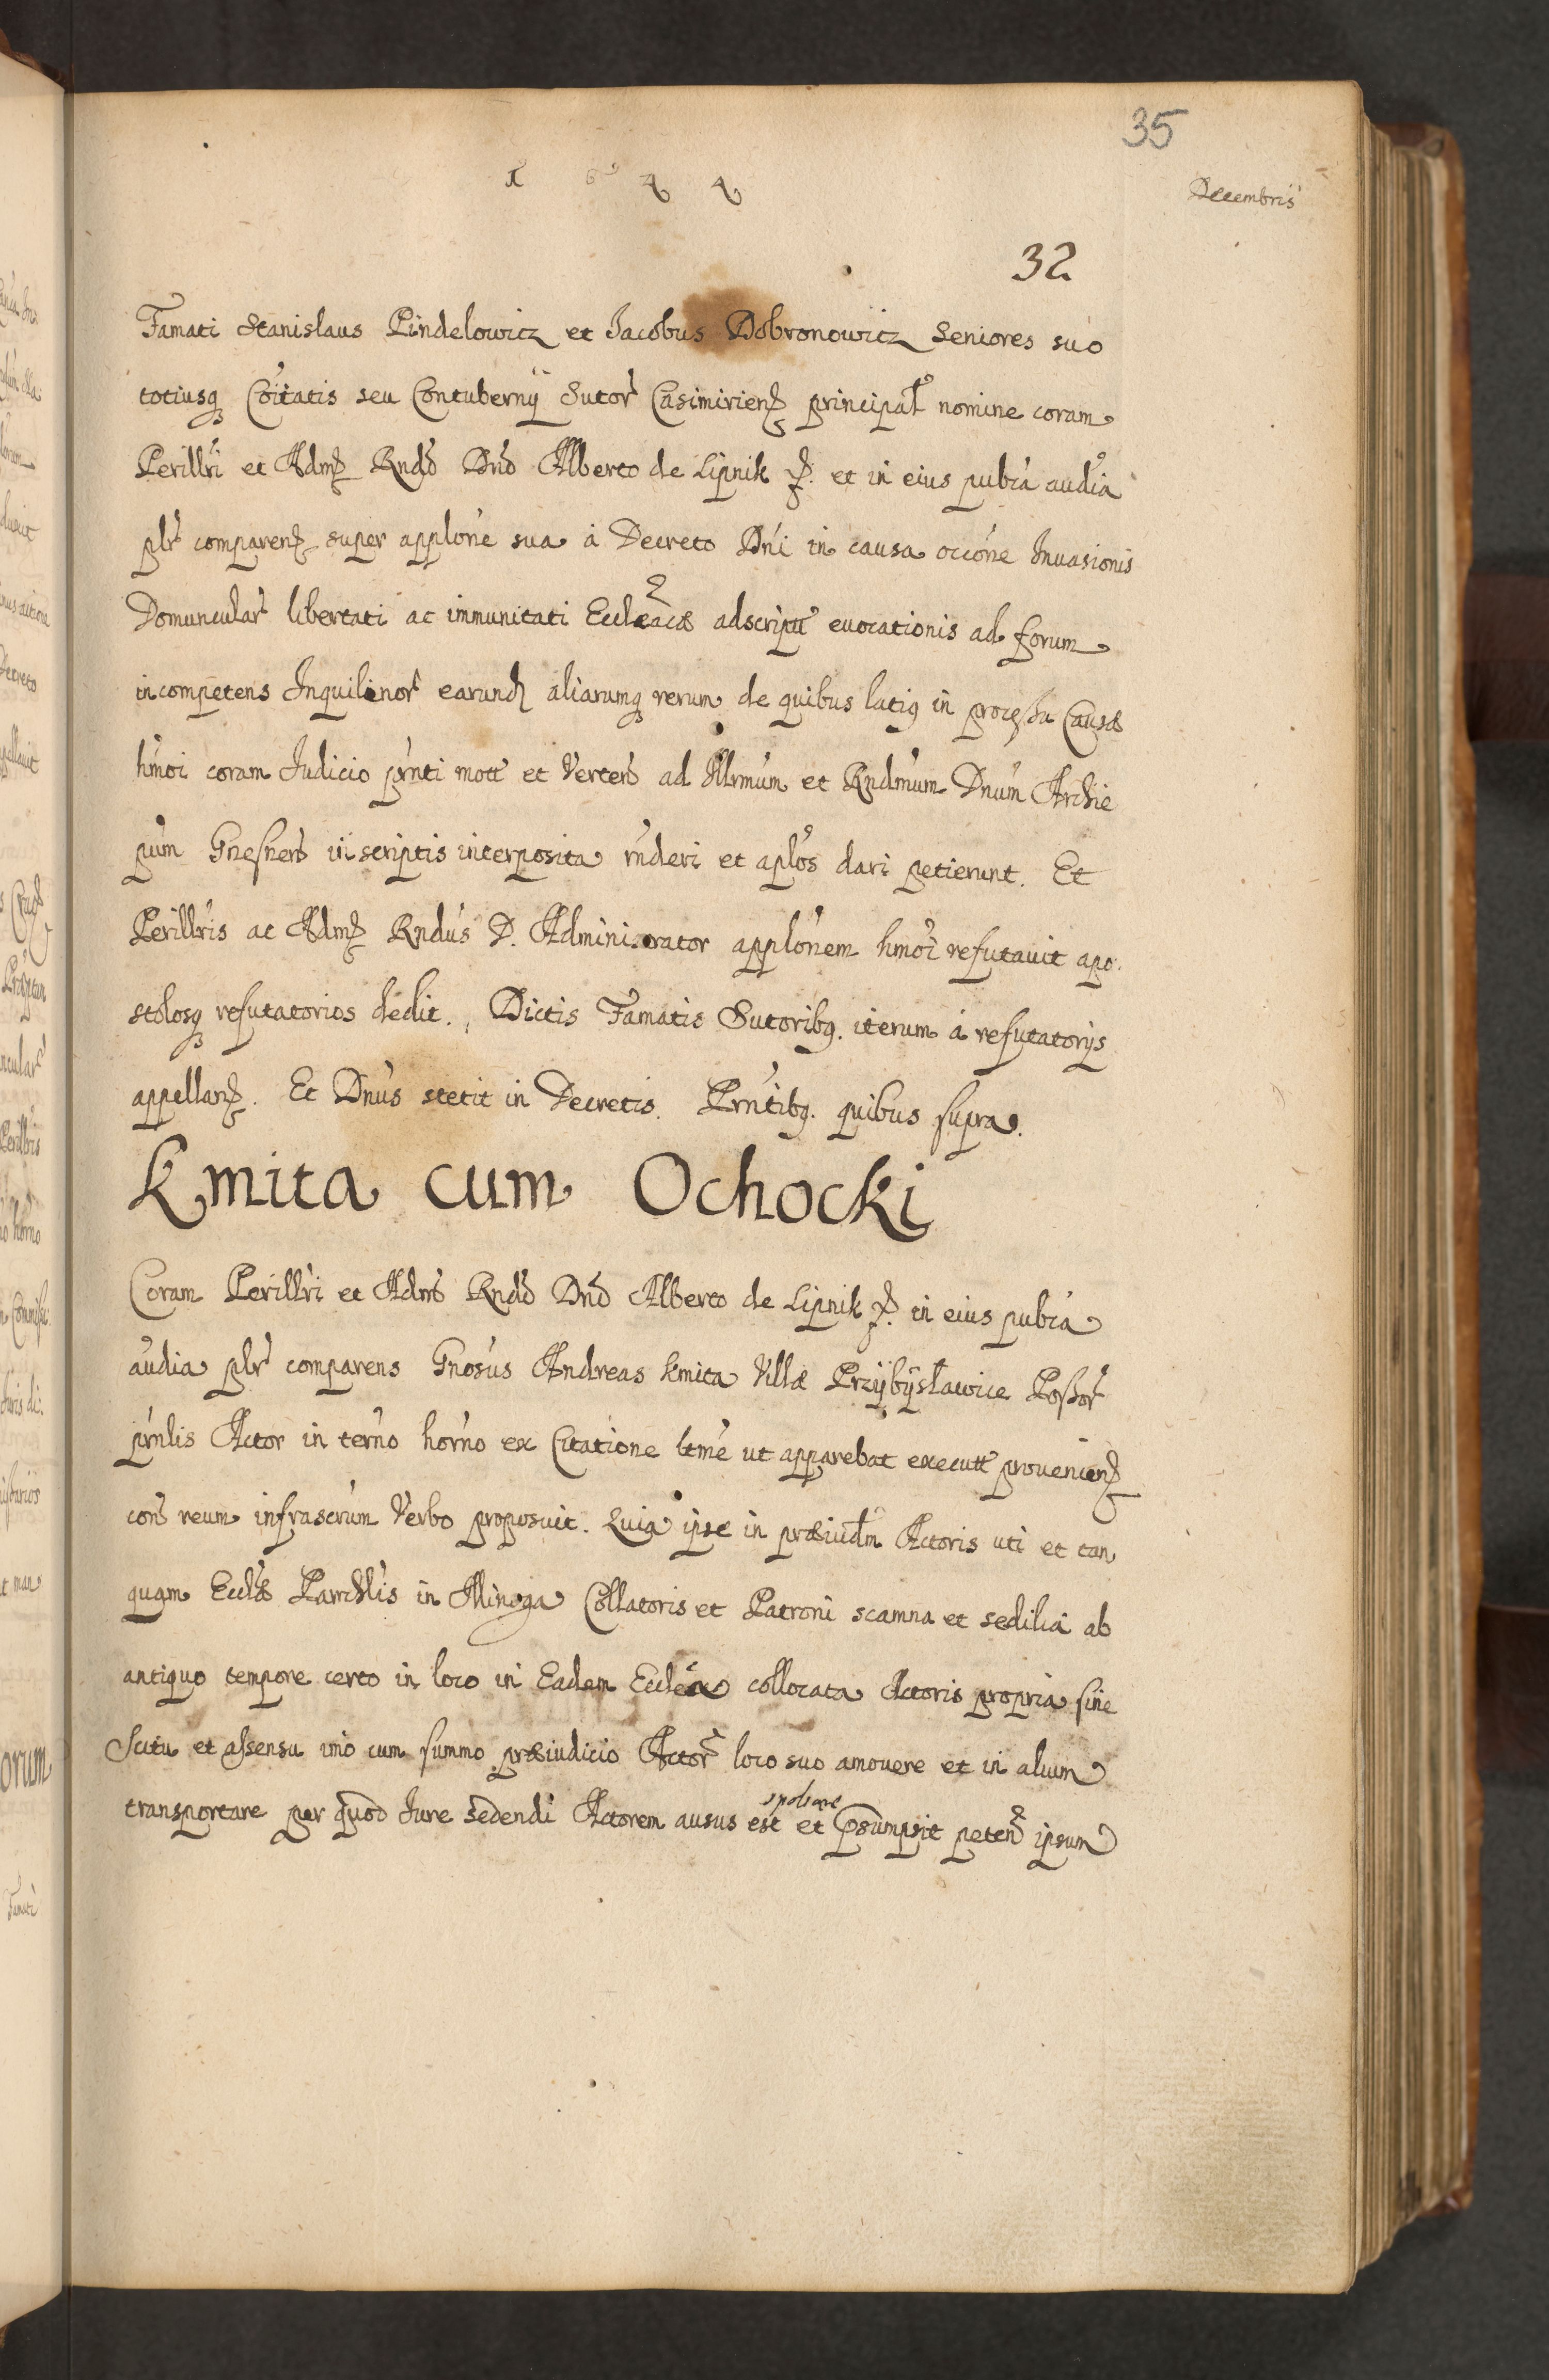 35
1 6 4 4
Decembris
32
Famati Stanislaus Pindelowicz et Jacobus Dobronowicz Seniores suo
totiusq Cõitatis seu Contubernÿ Sutor Casimiriens principal nomine coram
Perillri et Adm Rndo Dno Alberto de Lipnik et in eius pubca audia
plr comparens super applone sua à Decreto Dni in causa occone Inuasionis
Domuncular libertati ac immunitati Eccleacæ adscript euocationis ad forum
incompetens Inquilinor earund aliarumq rerum de quibus latig in processu Causæ
hmoi coram Iudicio prnti mott et Verten ad Illrmum et Rndmum Dnum Archie
pum Gnesnen in scriptis interposita rnderi et aplos dari petierunt. Et
Perillris ac Adm Rndus D. Administrator applonem hmoi refutauit apo
stolosq refutatorios dedit. Dictis Famatis Sutoribq. iterum à refutatorijs
appellan. Et Dnus stetit in Decretis. Prntibq. quibus supra.
Kmita cum Ochocki
Coram Perillri et Adm Rndo Dno Alberto de Lipnik in eius pubca
audia plr comparens Gnosus Andreas Kmita Villæ Przÿbÿsławice Possor
prnlis Actor in terno horno ex Citatione ltme ut apparebat executt prouenien
con reum infrascrum Verbo proposuit. Quia ipse in præiudm Actoris uti et tan
quam Ecclæ Parchlis in Minoga Collatoris et Patroni scamna et sedilia ab
antiquo tempore certo in loco in Eadem Ecclea collocata Actoris propria sine
Scitu et assensu imo cum summo præiudicio Actor loco suo amouere et in alium
spoliare
transportare per quod Iure Sedendi Actorem ausus est et psumpsit peten ipsum